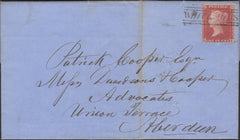 Patrick Cooper Esqr
Messrs Davidson & Cooper
Advocates
Union Terrace
Aberdeen